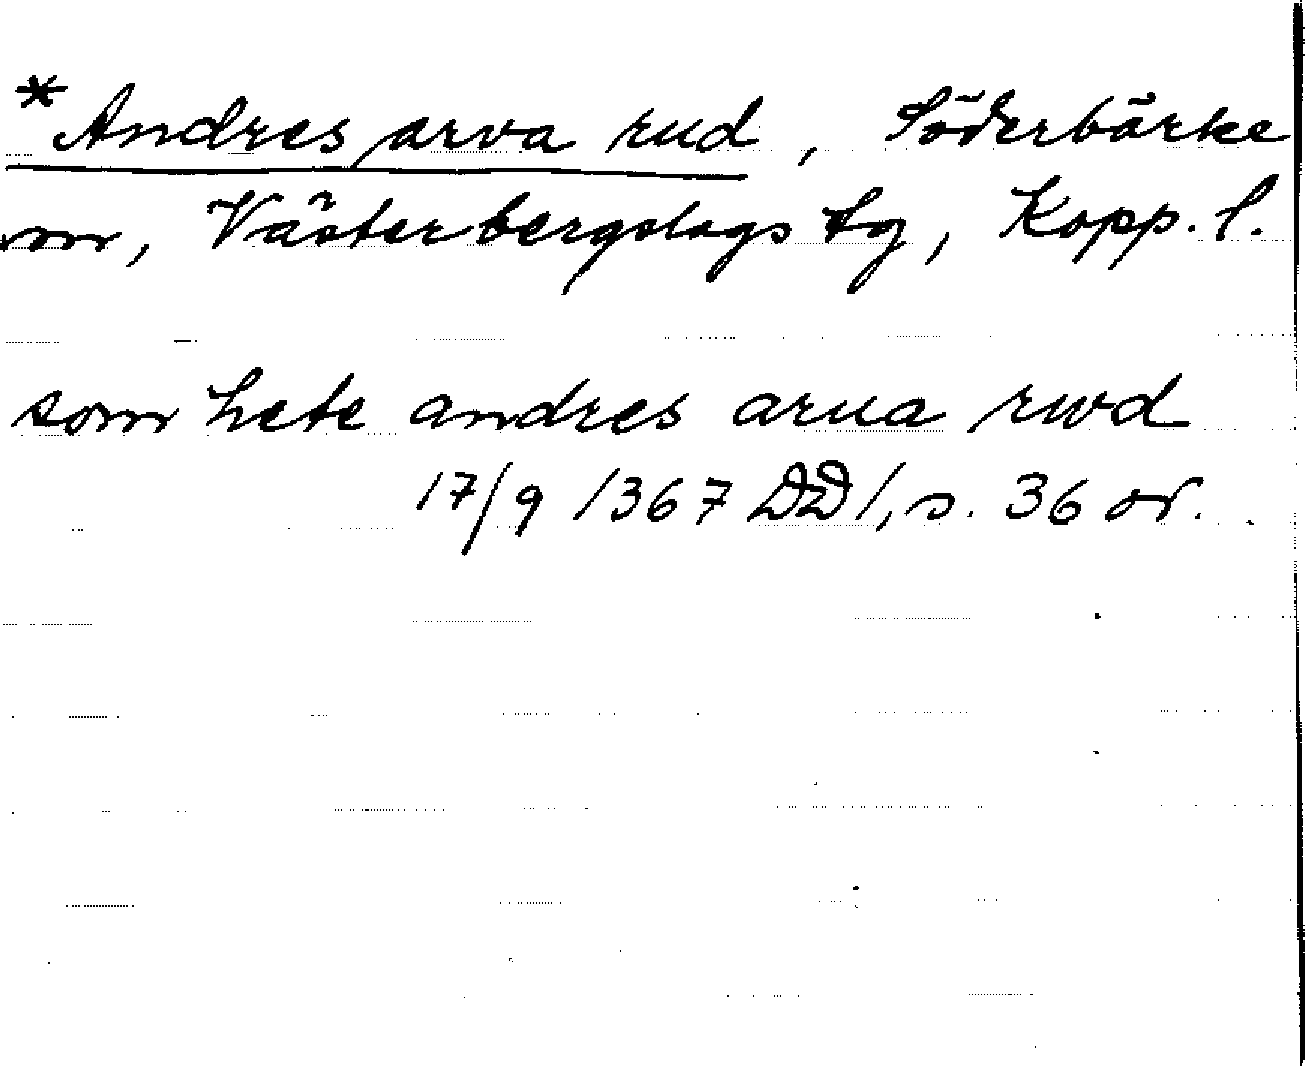 *Andres arva rud, Söderbärke
sn, Västerbergslags tg, Kopp. l.
som hete andres arua rwd
17/9 1367 DD1, s. 36 or.